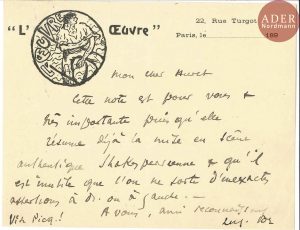 ADER
Nordmann
"L' ŒUVRE Œuvre"
22, Rue Turgot
Paris, le 189
Mon cher Muret
Cette note est pour vous &
très importante puis qu'elle
résume déjà la mise en scène
authentique Shakespearienne & qu'il
est inutile que l'on ne sorte d'inexactes
assertions à dr. ou à gauche.—
A vous, ami reconnaissant
Picq.!